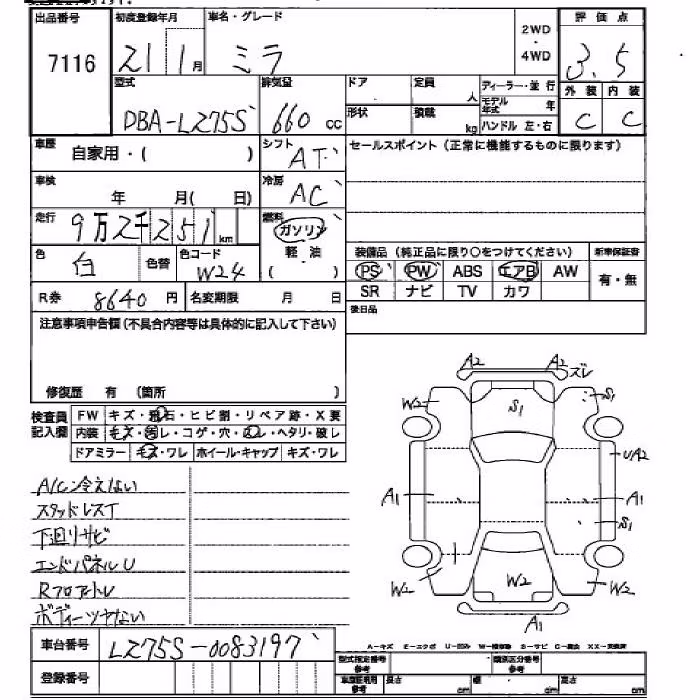 出品番号 初度登録年月 車名・グレード 2WD・4WD 評価点
7116 21 1月 ミラ 3.5
型式 排気量 ドア 定員 人 ディーラー・並行 外装 内装
DBA-LZ75S 660 cc 形状 積載 kg モデル年式 年 ハンドル 左・右 C C
車歴 自家用・( ) シフト AT セールスポイント(正常に機能するものに限ります)
車検 年 月( 日) 冷房 AC
走行 9万2千251 km 燃料 ガソリン 軽油 ( )
色 白 色替 色コード W24
装備品 (純正品に限り〇をつけてください) 新車保証書
PS PW ABS エアB AW 有・無
SR ナビ TV カワ
R券 8640円 名変期限 月 日 後日品
注意事項申告欄(不具合内容等は具体的に記入して下さい)
修復歴 有 (箇所 )
検査員記入欄 FW キズ・飛石・ヒビ割・リペア跡・X要
内装 キズ・汚レ・コゲ・穴・ ・ヘタリ・破レ
ドアミラー キズ・ワレ ホイール・キャップ キズ・ワレ
A/C冷えない
スタッドレスT
下廻りサビ
エンドパネルU
Rフロアトレ
ボディーツヤない
A2 A2 ズレ
W2 S1
UA2
A1 A1
S1
W2 W2 W2
A1
A-キズ E-エクボ U-凹み W-補修跡 S-サビ C-腐食 XX-交換済
車台番号 LZ75S-0083197
登録番号
型式指定番号 参考 類別区分番号 参考
車庫証明用 参考 長さ cm 幅 cm 高さ cm